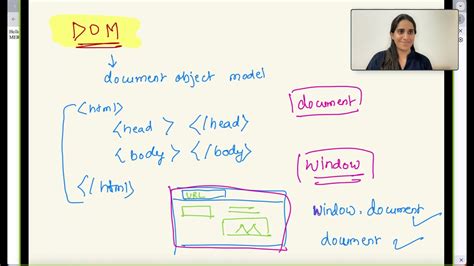 DOM
document object model
<html>
<head > </head>
<body > </body>
</html>
document
window
URL
window.document
document